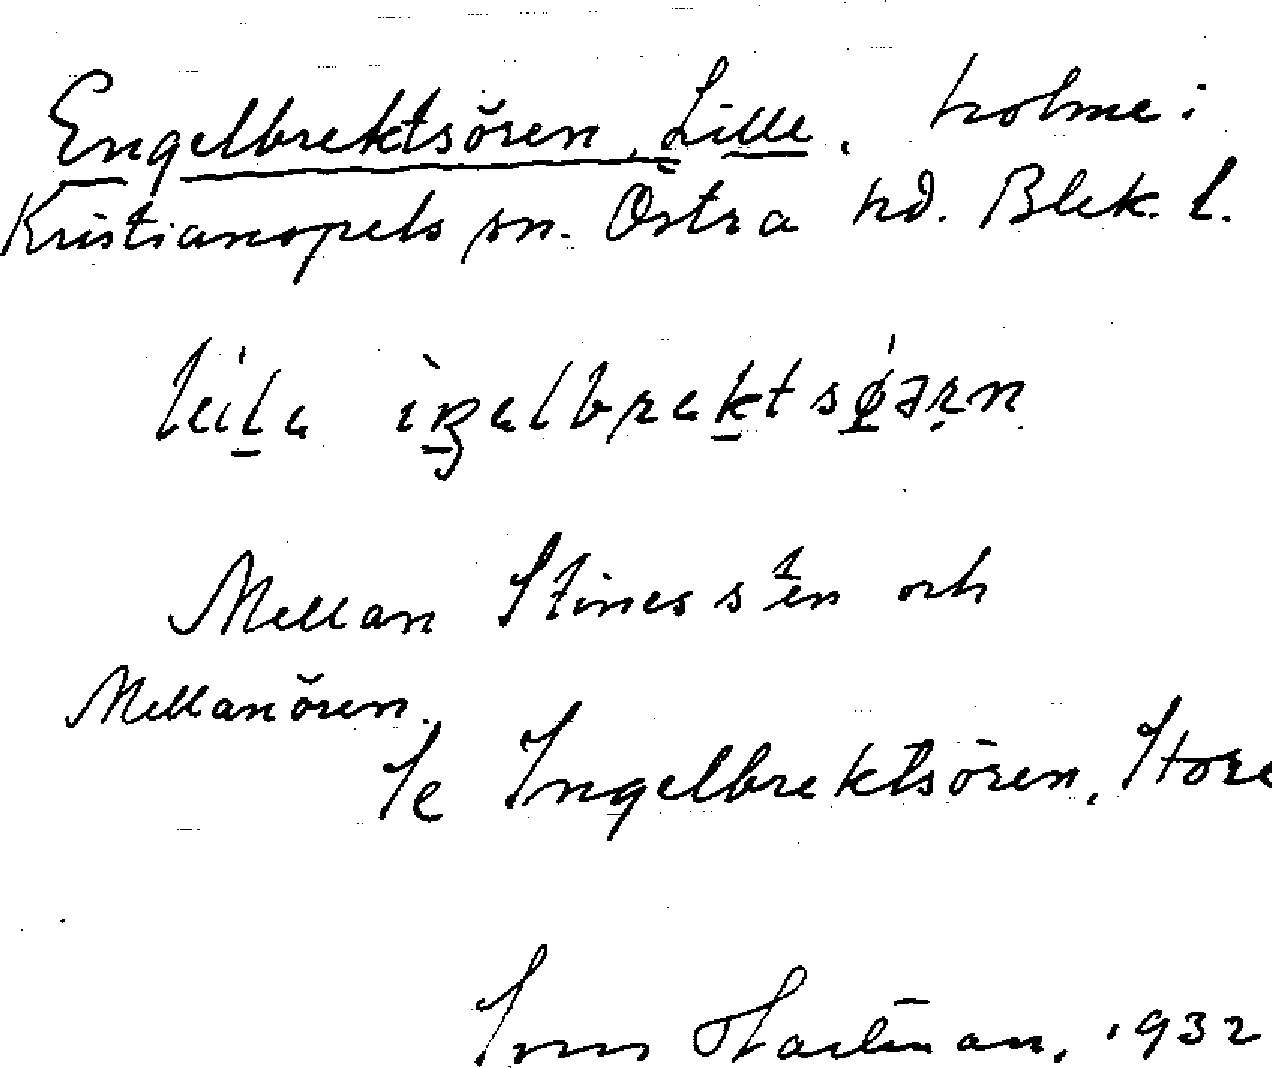 Engelbrektsören, Lille, holme i
Kristianopels sn. Östra hd. Blek. l.
Mellan Stines sten och
Mellanören.
Se Ingelbrektsören, Store
Hartman, 1932